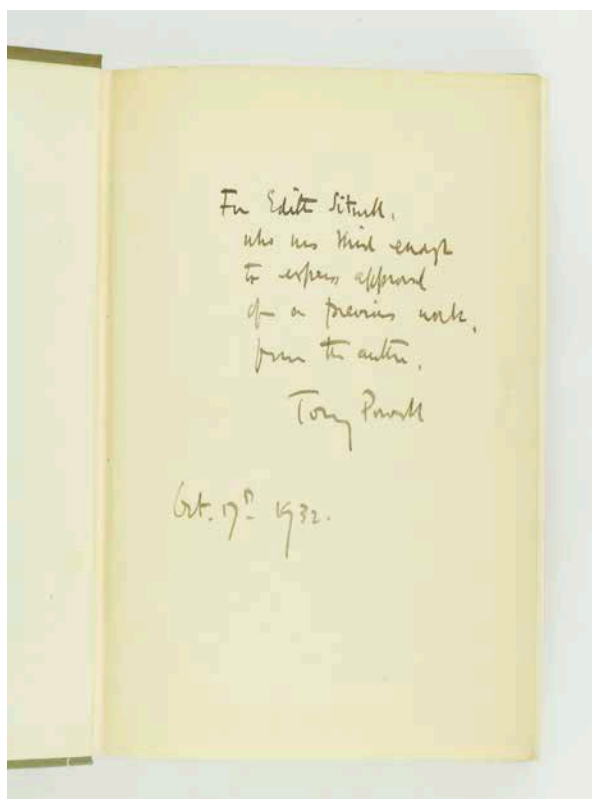 For Edith Sitwell,
who was kind enough
to express approval
of a previous work,
from the author,
Tony Powell
Oct. 17th 1932.